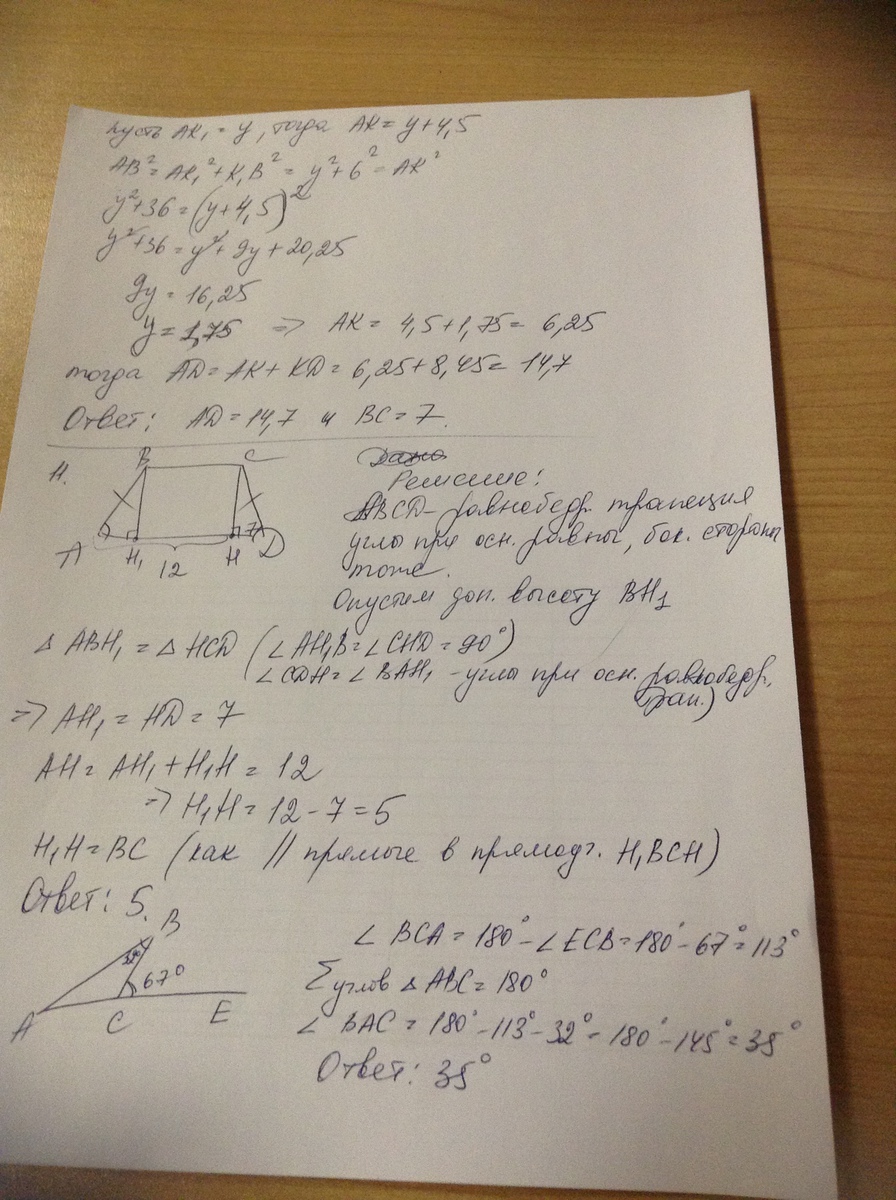 пусть AK₁ = y, тогда AK = y+4,5
AB² = AK₁² + K₁B² = y² + 6² = AK²
y²+36 = (y+4,5)²
y²+36 = y²+9y+20,25
9y = 16,25
y = 1,75 => AK = 4,5+1,75 = 6,25
тогда AD = AK + KD = 6,25+8,45 = 14,7
Ответ: AD = 14,7 и BC = 7.
B C
A H₁ H 7 D
12
Решение:
ABCD - равнобедр. трапеция
углы при осн. равны, бок. стороны
тоже.
Опустим доп. высоту BH₁
△ ABH₁ = △ HCD (∠AH₁B = ∠CHD = 90°)
∠CDH = ∠BAH₁ - углы при осн. равнобедр.
трап.)
=> AH₁ = HD = 7
AH = AH₁ + H₁H = 12
=> H₁H = 12 - 7 = 5
H₁H = BC (как // прямые в прямоуг. H₁BCH)
Ответ: 5.
B
32°
67°
A C E
∠ BCA = 180° - ∠ECB = 180° - 67° = 113°
Σ углов △ ABC = 180°
∠ BAC = 180° - 113° - 32° = 180° - 145° = 35°
Ответ: 35°